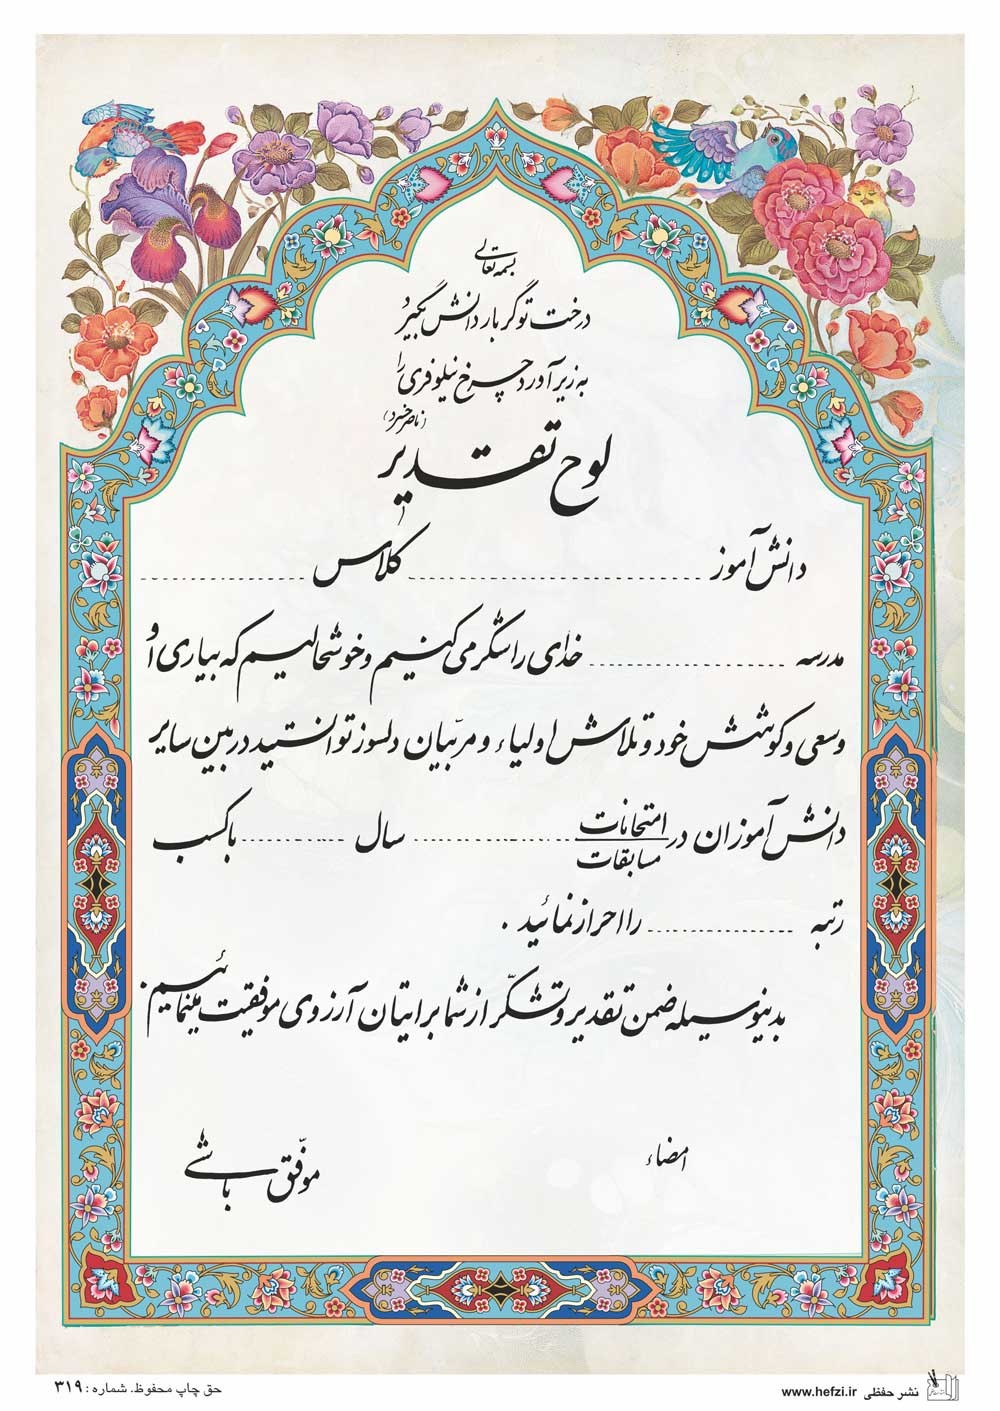 بسمه تعالی
درخت تو گر بار دانش بگیرد
به زیر آورد چرخ نیلوفری را
(ناصر خسرو)
لوح تقدیر
دانش آموز ........................ کلاس ................
مدرسه .................... خدای را شکر می کنیم و خوشحالیم که بیاری او
و سعی و کوشش خود و تلاش اولیاء و مربّیان دلسوز توانستید در بین سایر
دانش آموزان در امتحانات ................ سال ............ با کسب
مسابقات
رتبه ................ را احراز نمائید .
بدینوسیله ضمن تقدیر و تشکّر از شما برایتان آرزوی موفقیت مینمائیم.
امضاء
موفّق باشی
نشر حفظی www.hefzi.ir
حق چاپ محفوظ. شماره : ۳۱۹